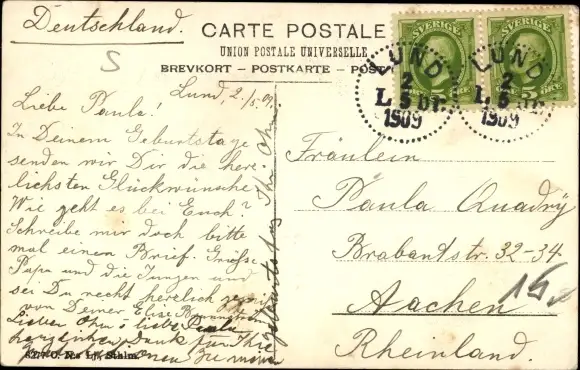 Deutschland.
CARTE POSTALE
UNION POSTALE UNIVERSELLE
BREVKORT – POSTKARTE – POST
SVERIGE
SVERIGE
5 ÖRE
5 ÖRE
LUND
2
L 5 BR.
1909
LUND
2
L 5 BR.
1909
S
Lund, 2/5. 09.
Liebe Paula!
In Deinem Geburtstage
senden wir Dir die herz-
lichsten Glückwünsche
Wie geht es bei Euch?
Schreibe mir doch bitte
mal einen Brief. Grüsse
Papa und die Jungen und
sei Du recht herzlich
von Deiner Elise
Lieber Ohm & liebe Paula
herzlichen Dank für Ihre
zu meinem
Geburtstag Ihr Ohm
Fräulein
Paula Quadry
Brabandstr. 32-34.
Aachen
Rheinland.
15
Sthlm.